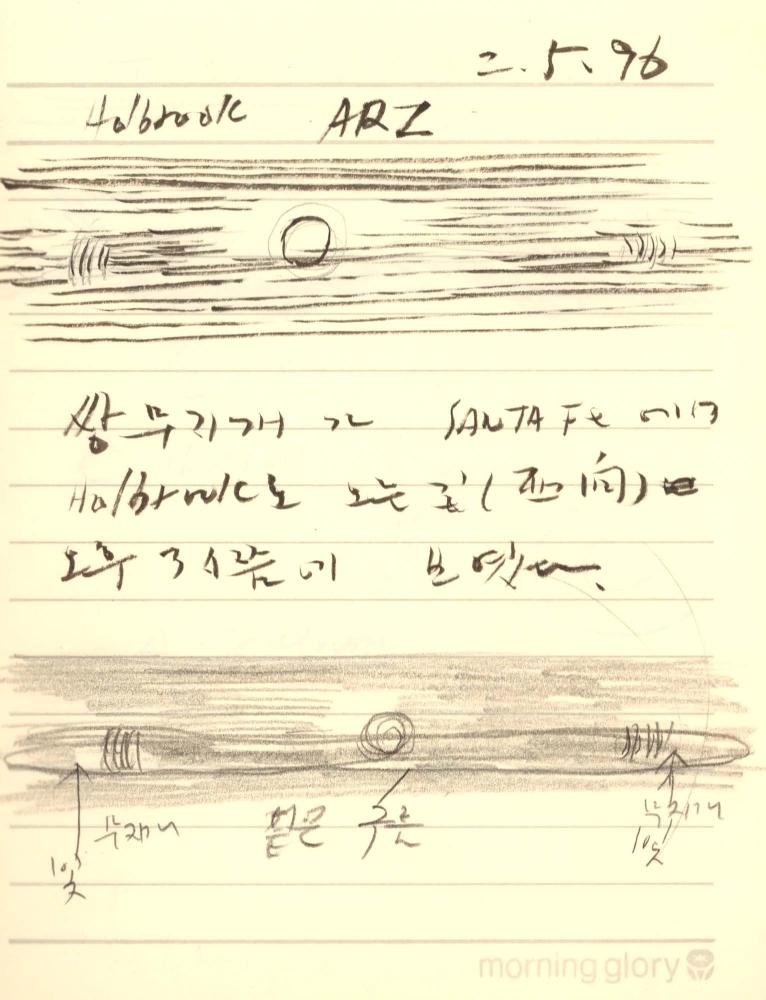 2.5.96
Holbrook ARZ
쌍무지개가 SANTA Fe에서
Holbrook로 오는 길(西向)
오후 3시쯤에 보였다.
무지개
엷은 구름
무지개
빛
빛
morning glory